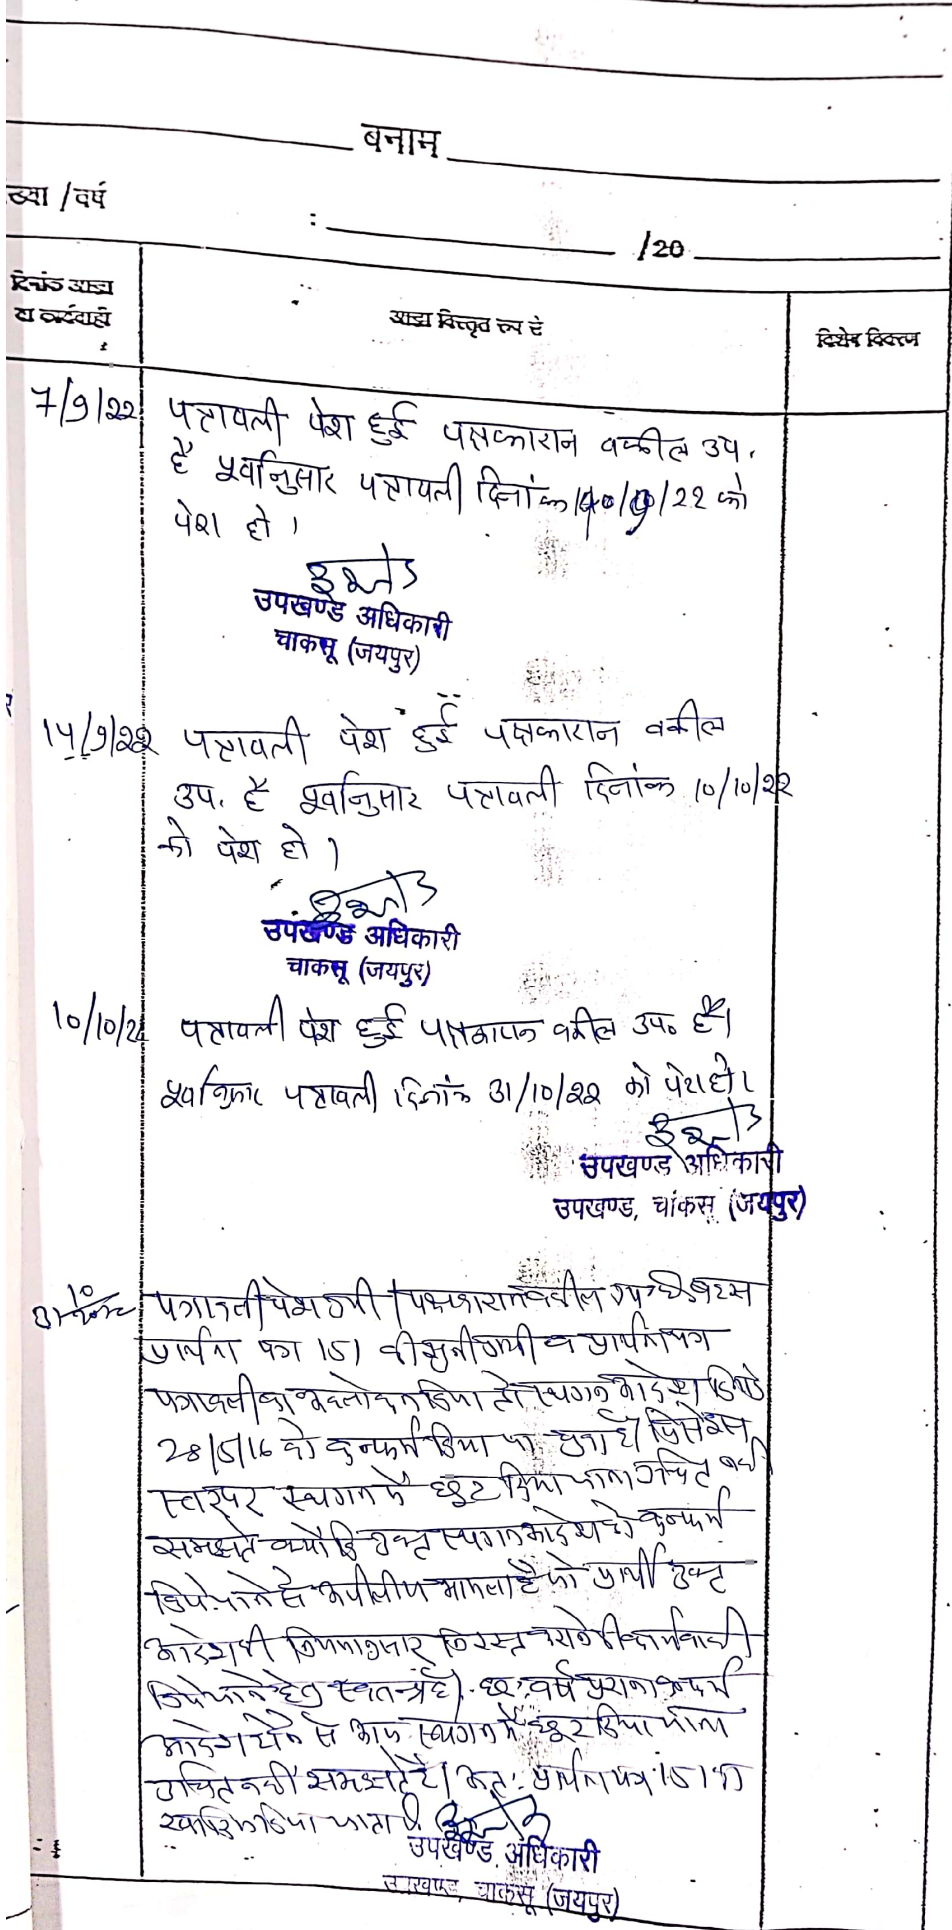 बनाम
ख्या / वर्ष
: /20
दिनांक आज्ञा
या कार्यवाही
आज्ञा विस्तृत रूप से
विशेष विवरण
7/9/22 पत्रावली पेश हुई पक्षकारान वकील उप.
है पूर्वानुसार पत्रावली दिनांक /9/22 को
पेश हो।
उपखण्ड अधिकारी
चाकसू (जयपुर)
14/9/22 पत्रावली पेश हुई पक्षकारान वकील
उप. है पूर्वानुसार पत्रावली दिनांक 10/10/22
को पेश हो।
उपखण्ड अधिकारी
चाकसू (जयपुर)
10/10/22 पत्रावली पेश हुई पक्षकारान वकील उप० है।
पूर्वानुसार पत्रावली दिनांक 31/10/22 को पेश हो।
उपखण्ड अधिकारी
उपखण्ड, चांकसू (जयपुर)
पत्रावली पेश हुयी। पक्षकारान वकील उप० है बहस
प्रार्थना पत्र 151 की सुनी गयी व प्रार्थना पत्र
पत्रावली का अवलोकन किया तो स्थगन आदेश दिनांक
28/5/16 को कन्फर्म किया जा चुका है। जिसे इस
स्तर पर स्थगन में छूट दिया जाना उचित नहीं
समझते क्योंकि उक्त स्थगन आदेश को कन्फर्म
किये जाने से अपीलीय मामला है जो प्रार्थी उक्ट
आदेश की नियमानुसार निरस्त कराने की कार्यवाही
किये जाने हेतु स्वतन्त्र है। छः वर्ष पुराना कन्फर्म
आदेश होने से आज स्थगन में छूट दिया जाना
उचित नहीं समझते है। अतः प्रार्थना पत्र 151 का
खारिज किया जाता है।
उपखण्ड अधिकारी
उपखण्ड, चाकसू (जयपुर)